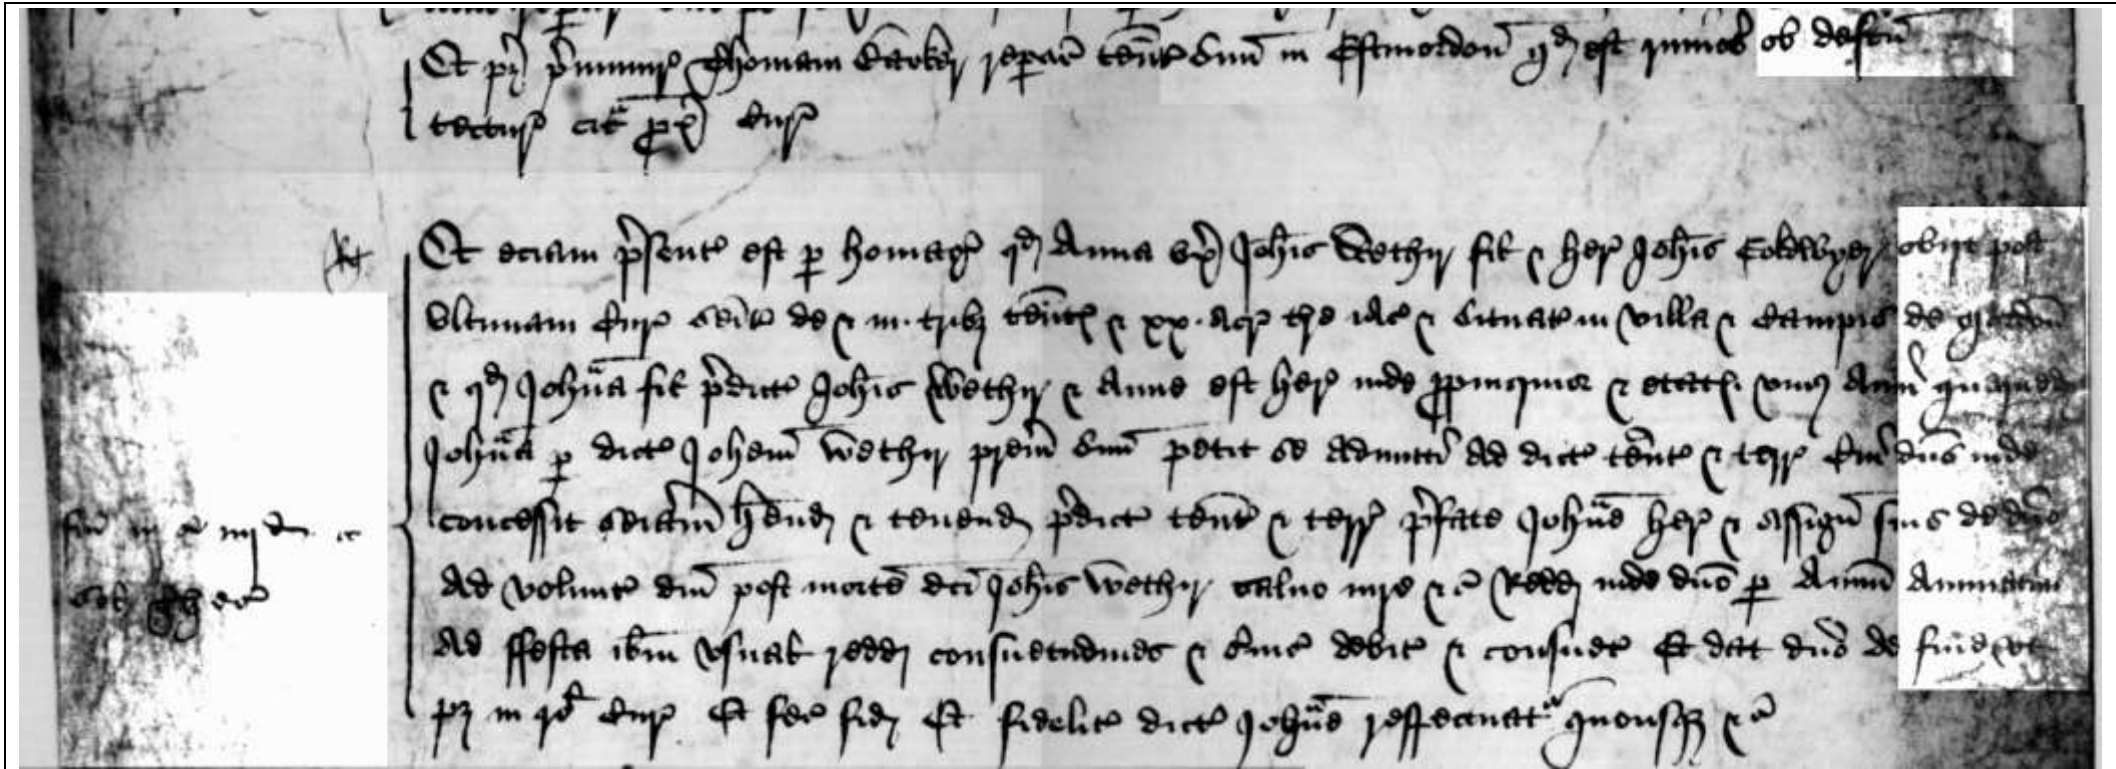 Et p̱ p̄munir̄ Thomam Barker repar̄ ten̄t suū in Estmordon̄ qd̄ est ruinos̄ ob defcū
tectur̄ cit̄ᵃ px̄ Cur̄
Et eciam p̄sent̄ est p homaḡ qd̄ Anna ux̄ Joh̄is Wethir fil & her̄ Joh̄is Coldwyer obijt post
Ultimam Cur̄ sēita de & in trib; ten̄t & xx acr̄ tr̄e iac̄ & situat̄ in villa & campis de Mordon̄
& qd̄ Joh̄na fil p̄dict̄ Joh̄is Wethir & Anne est her̄ inde ꝓpinquior & etatis uni⁹ Anni
Joh̄na p dict̄ Joh̄em̄ Wethir pr̄em̄ suū petit se admitti ad dict̄ ten̄t & terr̄ Cui dn̄s inde
concessit sei̅am̄ h̄end̄ & tenend̄ p̄dict̄ ten̄t & terr̄ p̄fate Joh̄ne her̄ & assign̄ suis de dn̄o
Ad volunt̄ dn̄i post mortē dc̄i Joh̄is Wethir salvo iure &c̄ Redd̄ inde dn̄o p Annū Annuatim
ad ffesta ib̄m usual redd̄ consuetudines & s̄uic̄ debit̄ & consuet̄ Et dat dn̄o de fine ut
p̱ in cap̄ Cur̄ Et fec̄ fid̄ Et fidelit̄ dict̄ Joh̄ne respectuat̄ᵃ quousq; &c̄
fin̄ iij s̄ iiij d̄